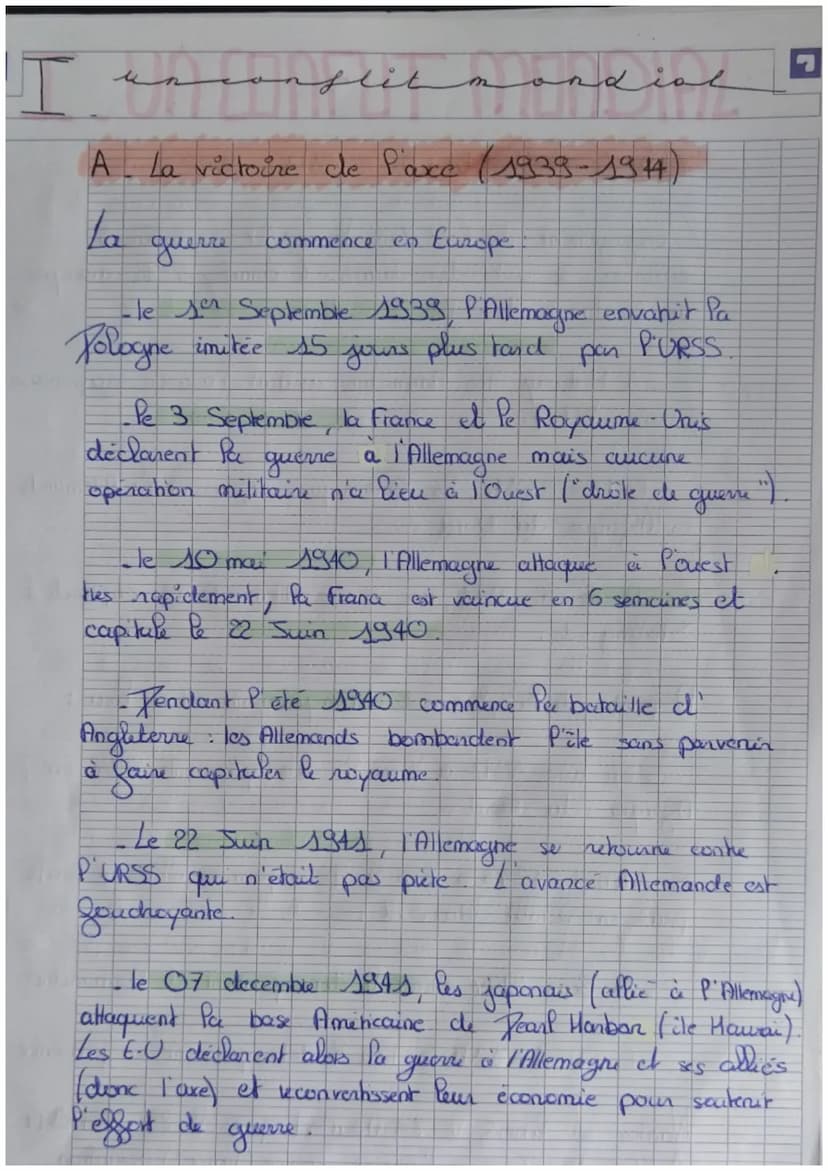 I. un conflit mondial
A. La victoire de l'axe (1939-1944)
La guerre commence en Europe :
- le 1er Septembre 1939, l'Allemagne envahit la
Pologne imitée 15 jours plus tard par l'URSS.
- le 3 Septembre, la France et le Royaume-Unis
déclarent la guerre à l'Allemagne mais aucune
opération militaire n'a lieu à l'Ouest ("drôle de guerre").
- le 10 mai 1940, l'Allemagne attaque à l'ouest.
très rapidement, la france est vaincue en 6 semaines et
capitule le 22 Juin 1940.
- Pendant l'été 1940 commence la bataille d'
Angleterre : les Allemands bombardent l'île sans parvenir
à faire capituler le royaume.
- Le 22 Juin 1941, l'Allemagne se retourne contre
l'URSS qui n'était pas prête. L'avancé Allemande est
foudroyante.
- le 07 decembre 1941, les japonais (allié à l'Allemagne)
attaquent la base Américaine de Pearl Harbor (île Hawai).
Les E-U déclarent alors la guerre à l'Allemagne et ses alliés
(donc l'axe) et reconvertissent leur économie pour soutenir
l'effort de guerre.